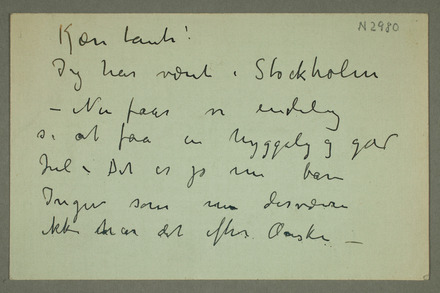 N 2980
Kære tante!
Jeg har været i Stockholm
– Nu faar vi endelig
se at faa en hyggelig og god
Jul – Det er jo nu bare
Inger som nu desværre
ikke har det efter Ønske –